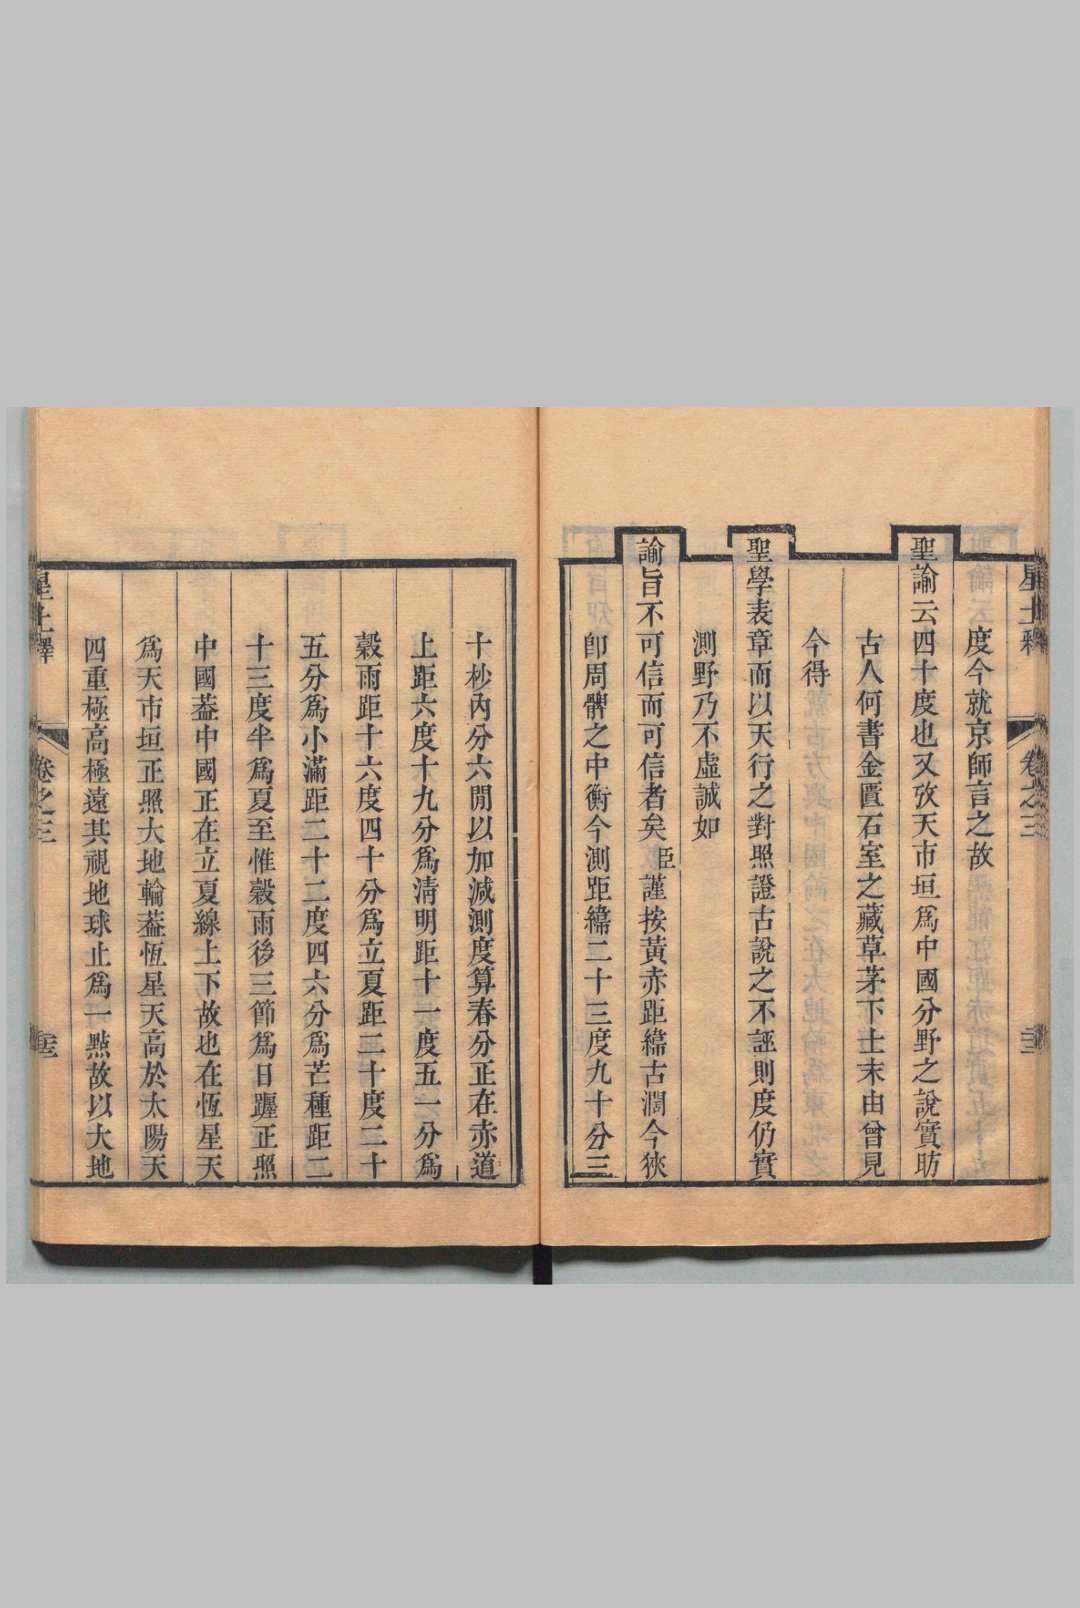 星土釋 卷之三
度今就京師言之故
聖諭云四十度也又攷天市垣爲中國分野之說實昉
古人何書金匱石室之藏草茅下士末由曾見
今得
聖學表章而以天行之對照證古說之不誣則度仍實
測野乃不虛誠如
諭旨不可信而可信者矣臣謹按黃赤距緯古濶今狹
卽周髀之中衡今測距緯二十三度九十分三
十杪內分六閒以加減測度算春分正在赤道
上距六度十九分爲淸明距十一度五一分爲
穀雨距十六度四十分爲立夏距二十度二十
五分爲小滿距二十二度四六分爲芒種距二
十三度半爲夏至惟穀雨後三節爲日躔正照
中國葢中國正在立夏線上下故也在恆星天
爲天市垣正照大地輪葢恆星天高於太陽天
四重極高極遠其視地球止爲一㸃故以大地
星土釋 卷之三